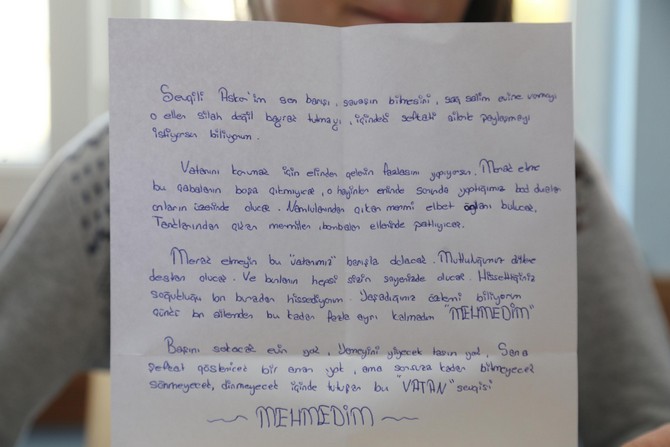 Sevgili Asker'im sen barışı, savaşın bitmesini, sağ salim evine varmayı
o ellen silah değil bayrak tutmayı, içindeki şefkati ailenle paylaşmayı
istiyorsun biliyorum.
Vatanını korumak için elinden gelenin fazlasını yapıyorsun. Merak etme
bu çabaların boşa çıkmıycak, o hayinler erinde sonunda yaptığımız bad duaları
onların üzerinde olucak. Namlularından çıkan mermi elbet onları bulucak.
Tanklarından çıkan mermiler, bombaları ellerinde patlıyıcak.
Merak etmeyin bu "vatanımız" barışla dolacak. Mutluluğumuz dillere
destan olucak. Ve bunların hepsi sizin sayenizde olucak. Hissettiğiniz
soğukluğu ben buradan hissediyorum. Yaşadığınız özlemi biliyorum
çünkü ben ailemden bu kadar fazla ayrı kalmadım "MEHMEDİM"
Başını sokacak evin yok, Yemeğini yiyecek tasın yok, Sana
şefkat göstericek bir anan yok, ama sonsuza kadar bitmeyecek
sönmeyecek, dinmeyecek içinde tutuşan bu "VATAN" sevgisi
MEHMEDİM